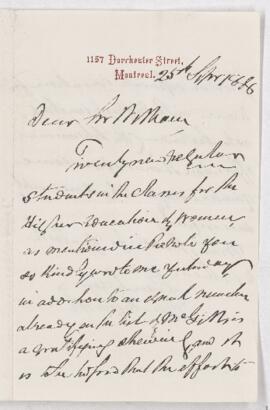 1157 Dorchester Street,
Montreal. 25th Sept 1886
Dear Sir William
Twenty new regular
students in the Classes for the
Higher Education of Women,
as mentioned in the note you
so kindly wrote me yesterday
in addition to an equal number
already on the list of McGill is
a gratifying showing and it
is to be hoped that the efforts to